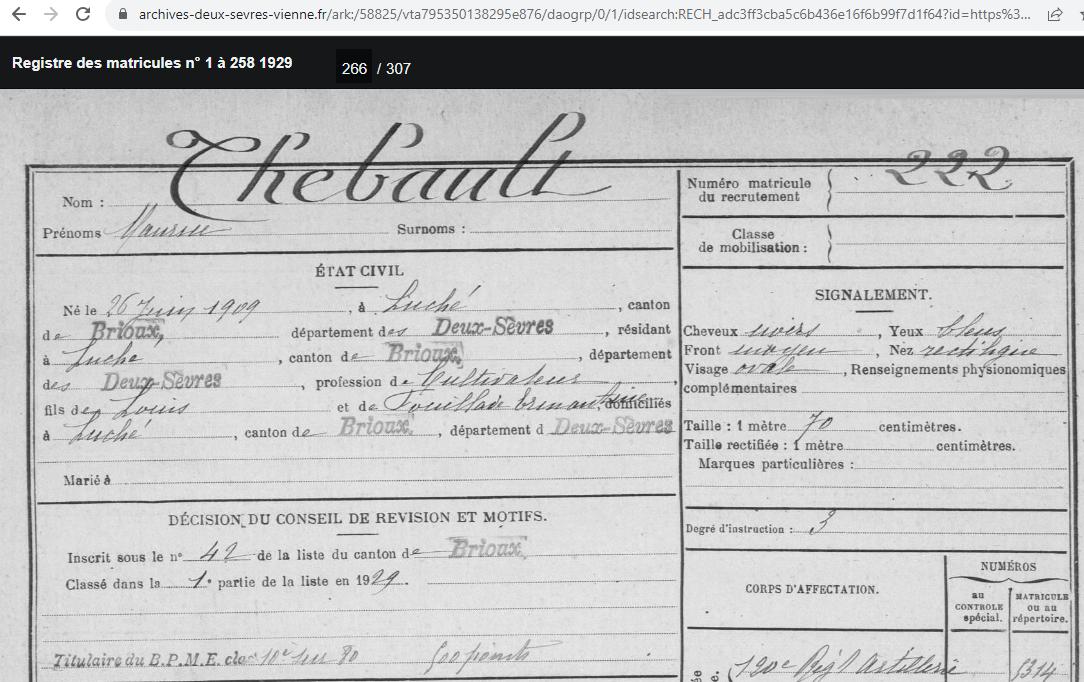 archives-deux-sevres-vienne.fr/ark:/58825/vta795350138295e876/daogrp/0/1/idsearch:RECH_adc3ff3cba5c6b436e16f6b99f7d1f64?id=https%3...
Registre des matricules n° 1 à 258 1929
266 / 307
Nom : Thebault
Prénoms Maurice Surnoms :
Numéro matricule du recrutement 222
Classe de mobilisation :
ÉTAT CIVIL
Né le 26 Juin 1909, à Luché, canton
de Brioux, département des Deux-Sèvres, résidant
à Luché, canton de Brioux, département
des Deux-Sèvres, profession de Cultivateur,
fils de Louis et de domiciliés
à Luché, canton de Brioux, département d Deux-Sèvres
Marié à
SIGNALEMENT.
Cheveux noirs, Yeux bleus
Front moyen, Nez rectiligne
Visage ovale, Renseignements physionomiques
complémentaires
Taille : 1 mètre 70 centimètres.
Taille rectifiée : 1 mètre centimètres.
Marques particulières :
Degré d'instruction : 3
DÉCISION DU CONSEIL DE REVISION ET MOTIFS.
Inscrit sous le n° 42 de la liste du canton de Brioux.
Classé dans la 1e partie de la liste en 1929.
Titulaire du B.P.M.E. 10e sur 80 500 points
CORPS D'AFFECTATION.
NUMÉROS
au CONTROLE spécial.
MATRICULE ou au répertoire.
120e Rég't Artillerie 1314